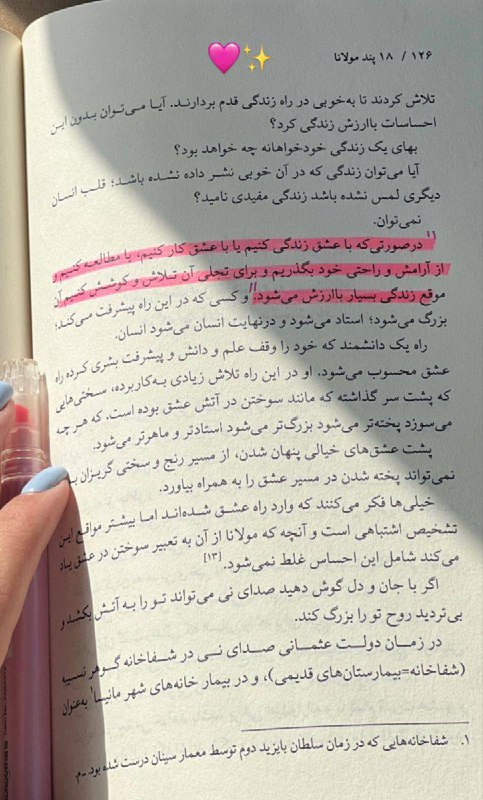 ۱۲۶ / ۱۸ پند مولانا
تلاش کردند تا به‌خوبی در راه زندگی قدم بردارند. آیا می‌توان بدون این
احساسات باارزش زندگی کرد؟
بهای یک زندگی خودخواهانه چه خواهد بود؟
آیا می‌توان زندگی که در آن خوبی نشر داده نشده باشد؛ قلب انسان
دیگری لمس نشده باشد زندگی مفیدی نامید؟
نمی‌توان.
درصورتی‌که با عشق زندگی کنیم یا با عشق کار کنیم، یا مطالعه کنیم و
از آرامش و راحتی خود بگذریم و برای تجلی آن تلاش و کوشش کنیم آن
موقع زندگی بسیار باارزش می‌شود. و کسی که در این راه پیشرفت می‌کند؛
بزرگ می‌شود؛ استاد می‌شود و درنهایت انسان می‌شود انسان.
راه یک دانشمند که خود را وقف علم و دانش و پیشرفت بشری کرده راه
عشق محسوب می‌شود. او در این راه تلاش زیادی به‌کاربرده، سختی‌هایی
که پشت سر گذاشته که مانند سوختن در آتش عشق بوده است. که هر چه
می‌سوزد پخته‌تر می‌شود بزرگ‌تر می‌شود استادتر و ماهرتر می‌شود.
پشت عشق‌های خیالی پنهان شدن، از مسیر رنج و سختی گریزان
نمی‌تواند پخته شدن در مسیر عشق را به همراه بیاورد.
خیلی‌ها فکر می‌کنند که وارد راه عشق شده‌اند اما بیشتر مواقع این
تشخیص اشتباهی است و آنچه که مولانا از آن به تعبیر سوختن در عشق یاد
می‌کند شامل این احساس غلط نمی‌شود.[۱۳]
اگر با جان و دل گوش دهید صدای نی می‌تواند تو را به آتش بکشد و
بی‌تردید روح تو را بزرگ کند.
در زمان دولت عثمانی صدای نی در شفاخانه گوهر نسیبه
(شفاخانه=بیمارستان‌های قدیمی)، و در بیمار خانه‌های شهر مانیسا۱ به‌عنوان
۱. شفاخانه‌هایی که در زمان سلطان بایزید دوم توسط معمار سینان درست شده بود.-م